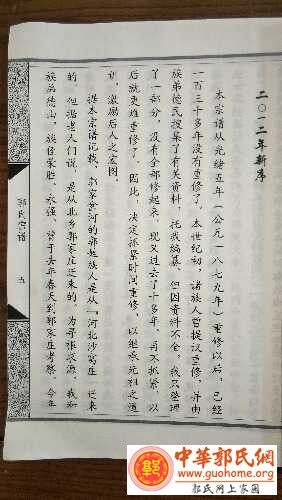 二〇一二年新序
本宗谱从光绪五年（公元一八七九年）重修以后，已经
一百三十多年没有重修了。本世纪初，诸族人曾提议重修，并由
族弟德民搜集了有关资料，托我编纂。但因资料不全，我只整理
了一部分，没有全部修起来。现又过去了十多年，再不抓紧，以
后就更难重修了。因此，决定抓紧时间重修，以继承元祖之道
训，激励后人之宏图。
据本宗谱记载，郭家
河的郭姓族人是从「河北沙窝庄
迁来
的，但据老人们说，是从北乡郭家庄迁来的。为寻根求源，我和
族弟德山、族侄荣胜、永强，曾于去年春天到郭家庄考察，今年
郭氏宗谱
五
中華郭氏網
www.guohome.org
郭氏网上家园